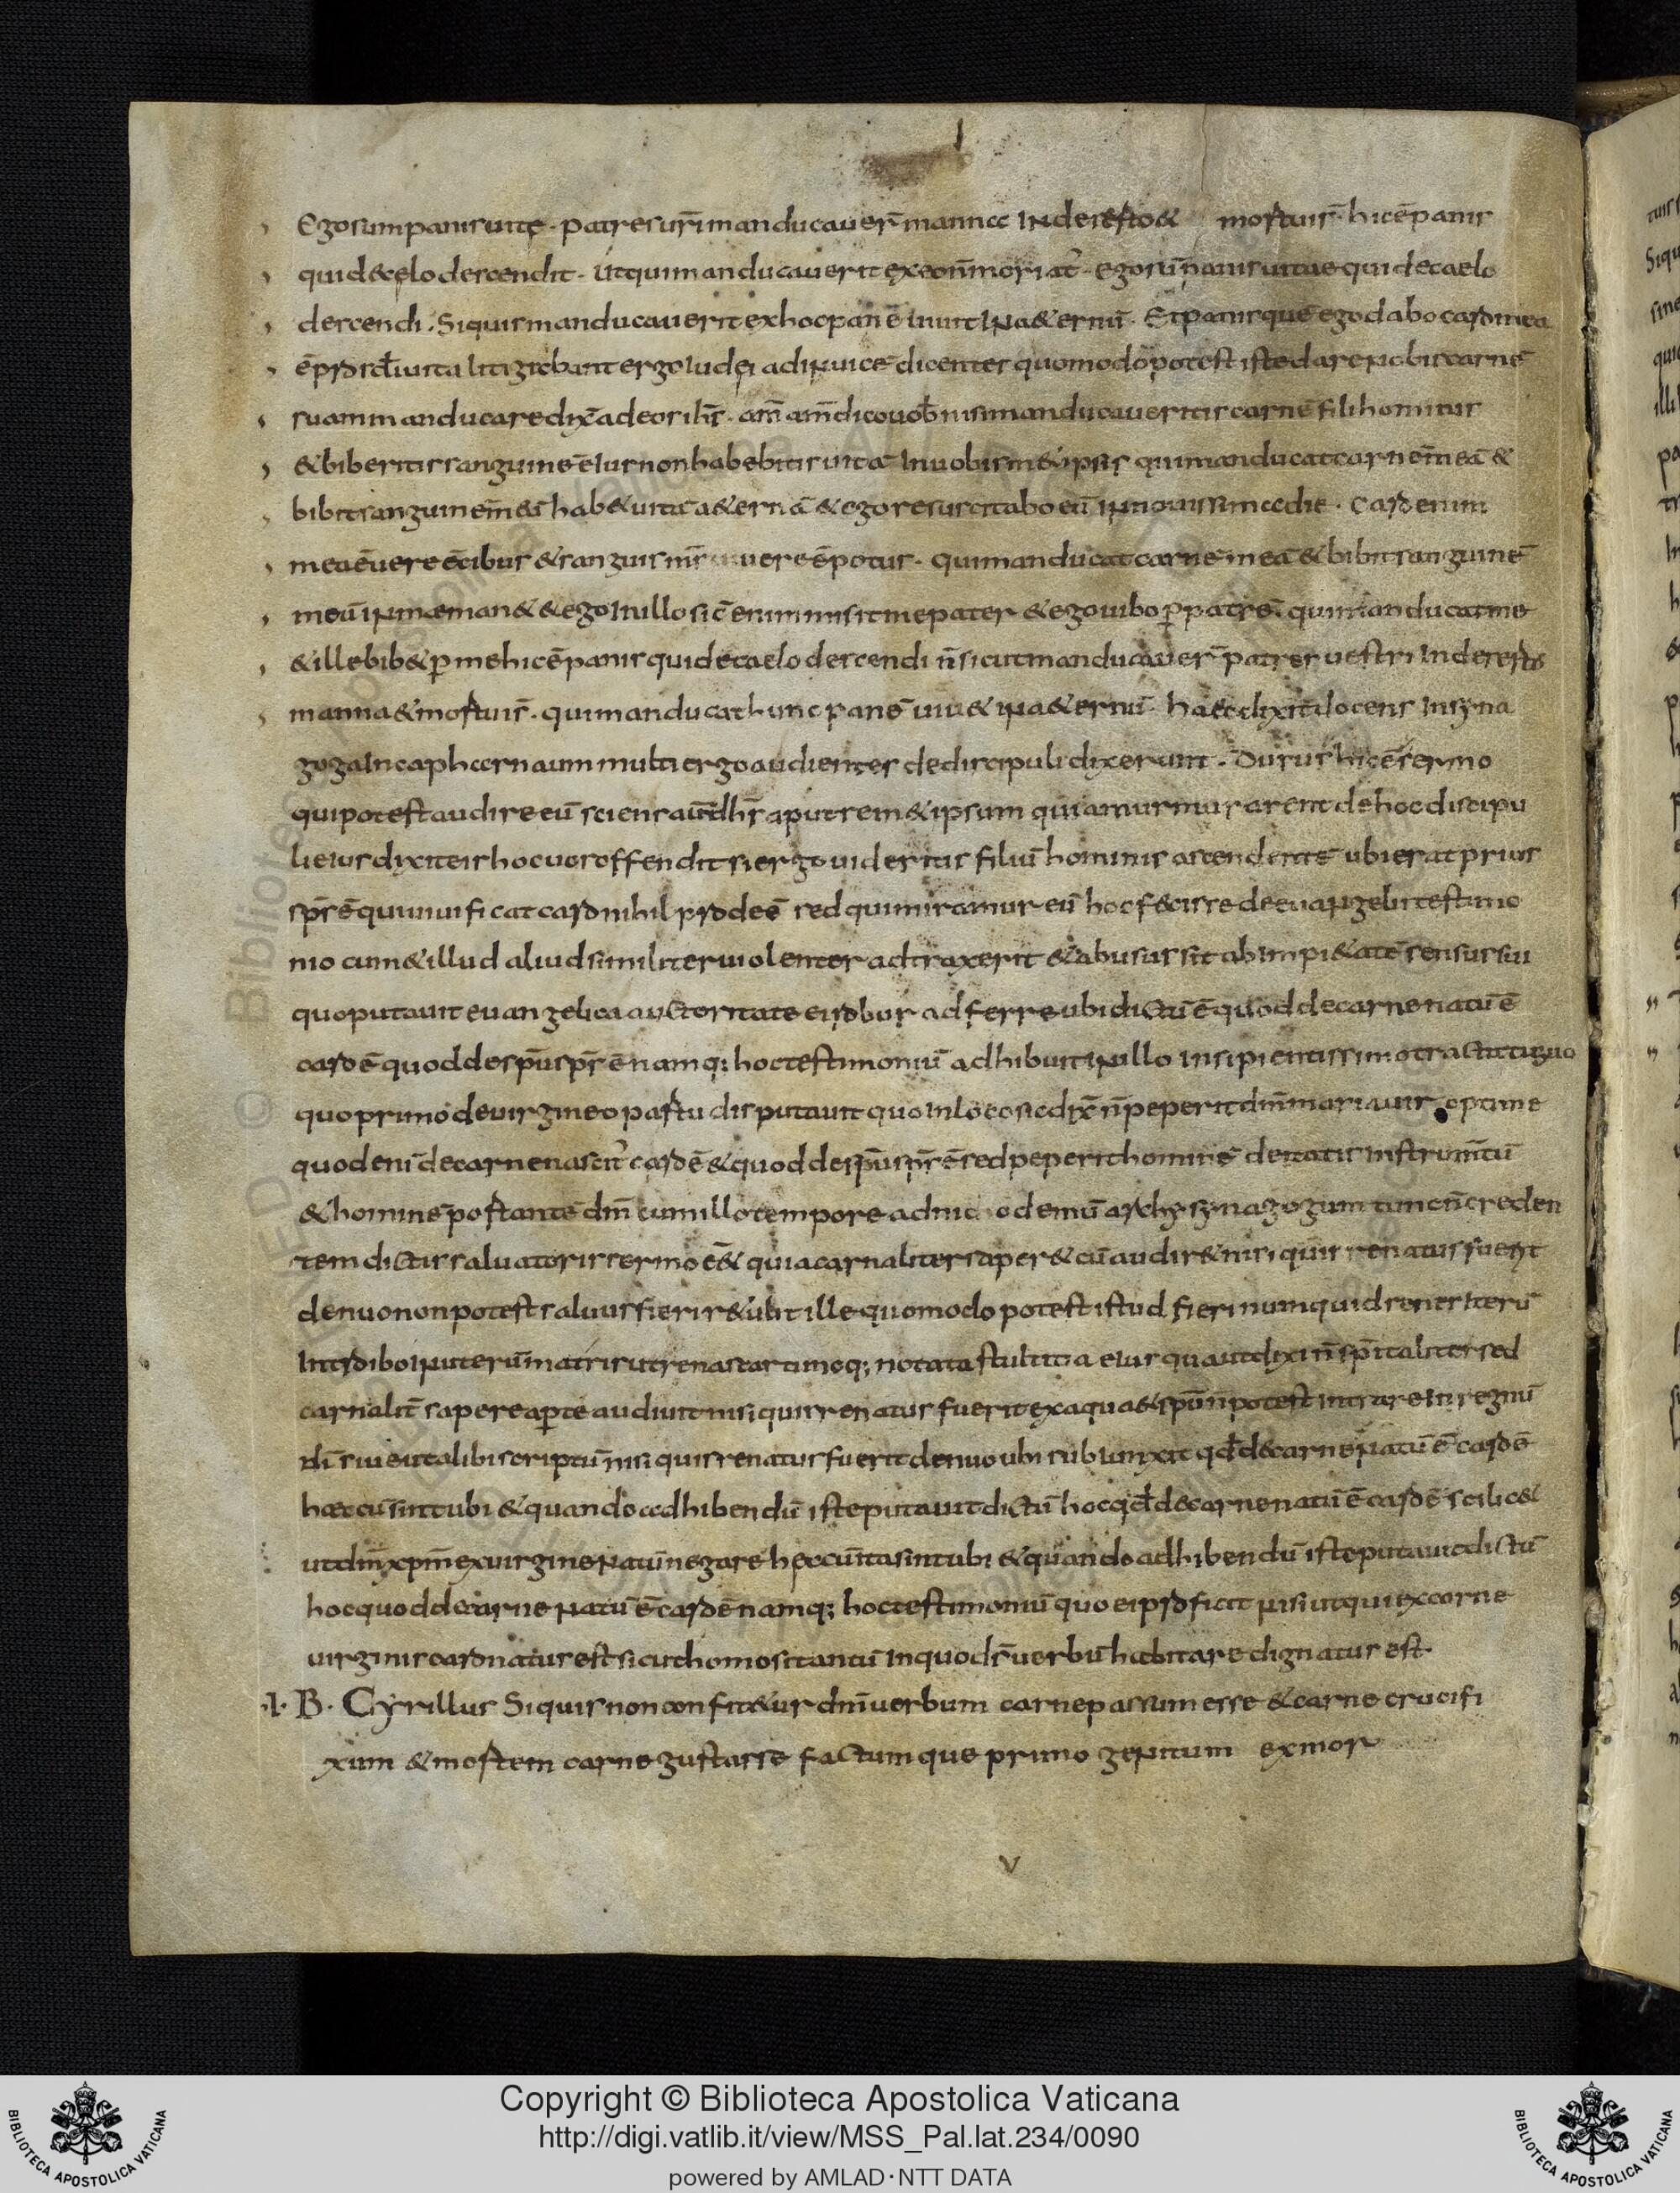 Ego sum panis uitę · patres ur̄i manducauer̄ manna In deserto & mortui s̄· hic ē panis
qui de celo descendit · ut qui manducauerit ex eo n̄ moriat᷑ · ego sū panis uitae qui de caelo
descendi · Si quis manducauerit ex hoc panē uiuit In a&ernū · Et panis quē ego dabo caro mea
ē pro scl̄i uita litigabant ergo Iudęi ad inuicē dicentes quomodo potest iste dare nobis carnē
suam manducare dix̄ ad eos ih̄s · am̄ am̄ dico uob̄ nisi manducaueritis carnē fili hominis
& biberitis sanguinē eius non habebitis uitā In uobism&ipsis qui manducat carnē meā &
bibit sanguinē m̄ hab& uitā a&ernā & ego resuscitabo eū in nouissima die · Caro enim
mea ē uere ē cibus & sanguis m̄s uere ē potus · qui manducat carnē meā & bibit sanguinē
meū in me man& & ego In illo sic̄ enim misit me pater & ego uibo ꝑ patrē qui manducat me
& ille bib& ꝑ me hic ē panis qui de caelo descendi n̄ sicut manducauer̄ patres uestri In deserto
manna & mortui s̄ · qui manducat hunc panē uiu& in a&ernū · haec dixit docens In syna
goga In caphar naum multi ergo audientes de discipuli dixerunt · Durus hic ē sermo
qui potest audire eū sciens aut̄ ih̄s aput sem&ipsum quia murmurarent de hoc discipu
li eius dixit eis hoc uos offendit si ergo uideritis filiū hominis ascendentē ubi erat prius
sp̄s ē qui uiuificat caro nihil prodeē sed qui miramur eū hoc fecisse de euangelii testimo
nio cum & illud aliud similiter uiolenter adtraxerit & abusus sit ab impi&atē sensus sui
quo putauit euangelica auctoritate eirobur adferre ubi dictū ē quod de carne natū ē
caro ē quod de sp̄u sp̄s ē namq; hoc testimoniū adhibuit in illo Insipientissimo tractatu suo
quo primo de uirgineo partu disputauit quo In loco sic dix̄ n̄ peperit dn̄m maria uir optime
quod eni de carne nascit᷑ caro ē & quod de sp̄u sp̄s ē sed peperit hominē deitatis Instrumtū
& hominē portantē dn̄m cum illo tempore ad nic odemū archysynagogum tunc n̄ creden
tem dictus saluatoris sermo ē & quia carnaliter saper& cū audir& nisi quis renatus fuerit
denuo non potest saluus fieri & ubit ille quomodo potest istud fieri numquid senes Iterū
Introibo in uterū matris ut renascar tuncq; notata stultitia eius quaut dixi n̄ sp̄italiter sed
carnalit̄ sapere aꝑte audiuit nisi quis renatus fuerit ex aqua & sp̄u n̄ potest Intrare In regnū
dī siue ut alibi scriptū nisi quis renatus fuerit denuo ubi subiunxit qd̄ de carne natū ē caro ē
haec cū sint ubi & quando adhibendū iste putauit dictū hoc qd̄ de carne natū ē caro ē scilic&
ut dn̄m xp̄m ex uirgine natū negare hęc cū ita sint ubi & quando adhibendū iste putauit dictū
hoc quod de carne natū ē caro ē namq; hoc testimoniū quo ei proficit nisi ut qui ex carne
uirginis caro natus est sicut homo sit tantū In quo dī uerbū habitare dignatur est
·I· B · Cyrillus Si quis non confit&ur dm̄ uerbum carne passum esse & carne crucifi
xum & mortem carne gustasse factumque primo genitum ex mor
V
Copyright © Biblioteca Apostolica Vaticana
http://digi.vatlib.it/view/MSS_Pal.lat.234/0090
powered by AMLAD·NTT DATA
BIBLIOTECA APOSTOLICA VATICANA
BIBLIOTECA APOSTOLICA VATICANA